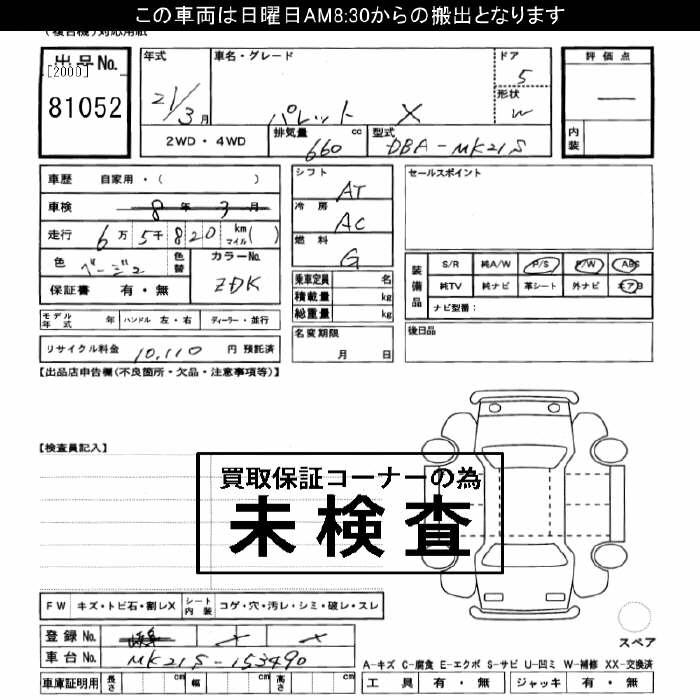 この車両は日曜日AM8:30からの搬出となります
(複合機)対応用紙
出品No. [2000] 81052
年式 21/3月
車名・グレード パレット X
ドア 5
形状 W
評価点 —
内装
2WD・4WD
排気量 660 cc
型式 DBA-MK21S
車歴 自家用・( )
車検 8年 3月
走行 6万5千820 km マイル( )
色 ベージュ 色替
カラーNo. ZDK
保証書 有・無
シフト AT
冷房 AC
燃料 G
乗車定員 名
積載量 kg
総重量 kg
名変期限 月 日
セールスポイント
装備品 S/R 純A/W P/S P/W ABS
純TV 純ナビ 革シート 外ナビ エアB
ナビ型番:
後日品
モデル年式 年 ハンドル 左・右 ディーラー・並行
リサイクル料金 10,110 円 預託済
【出品店申告欄(不良箇所・欠品・注意事項等)】
【検査員記入】
買取保証コーナーの為
未検査
FW キズ・トビ石・割レX シート内装 コゲ・穴・汚レ・シミ・破レ・スレ
登録No.
車台No. MK21S-153490
車庫証明用 長さ cm 幅 cm 高さ cm
スペア
A-キズ C-腐食 E-エクボ S-サビ U-凹ミ W-補修 XX-交換済
工具 有・無 ジャッキ 有・無